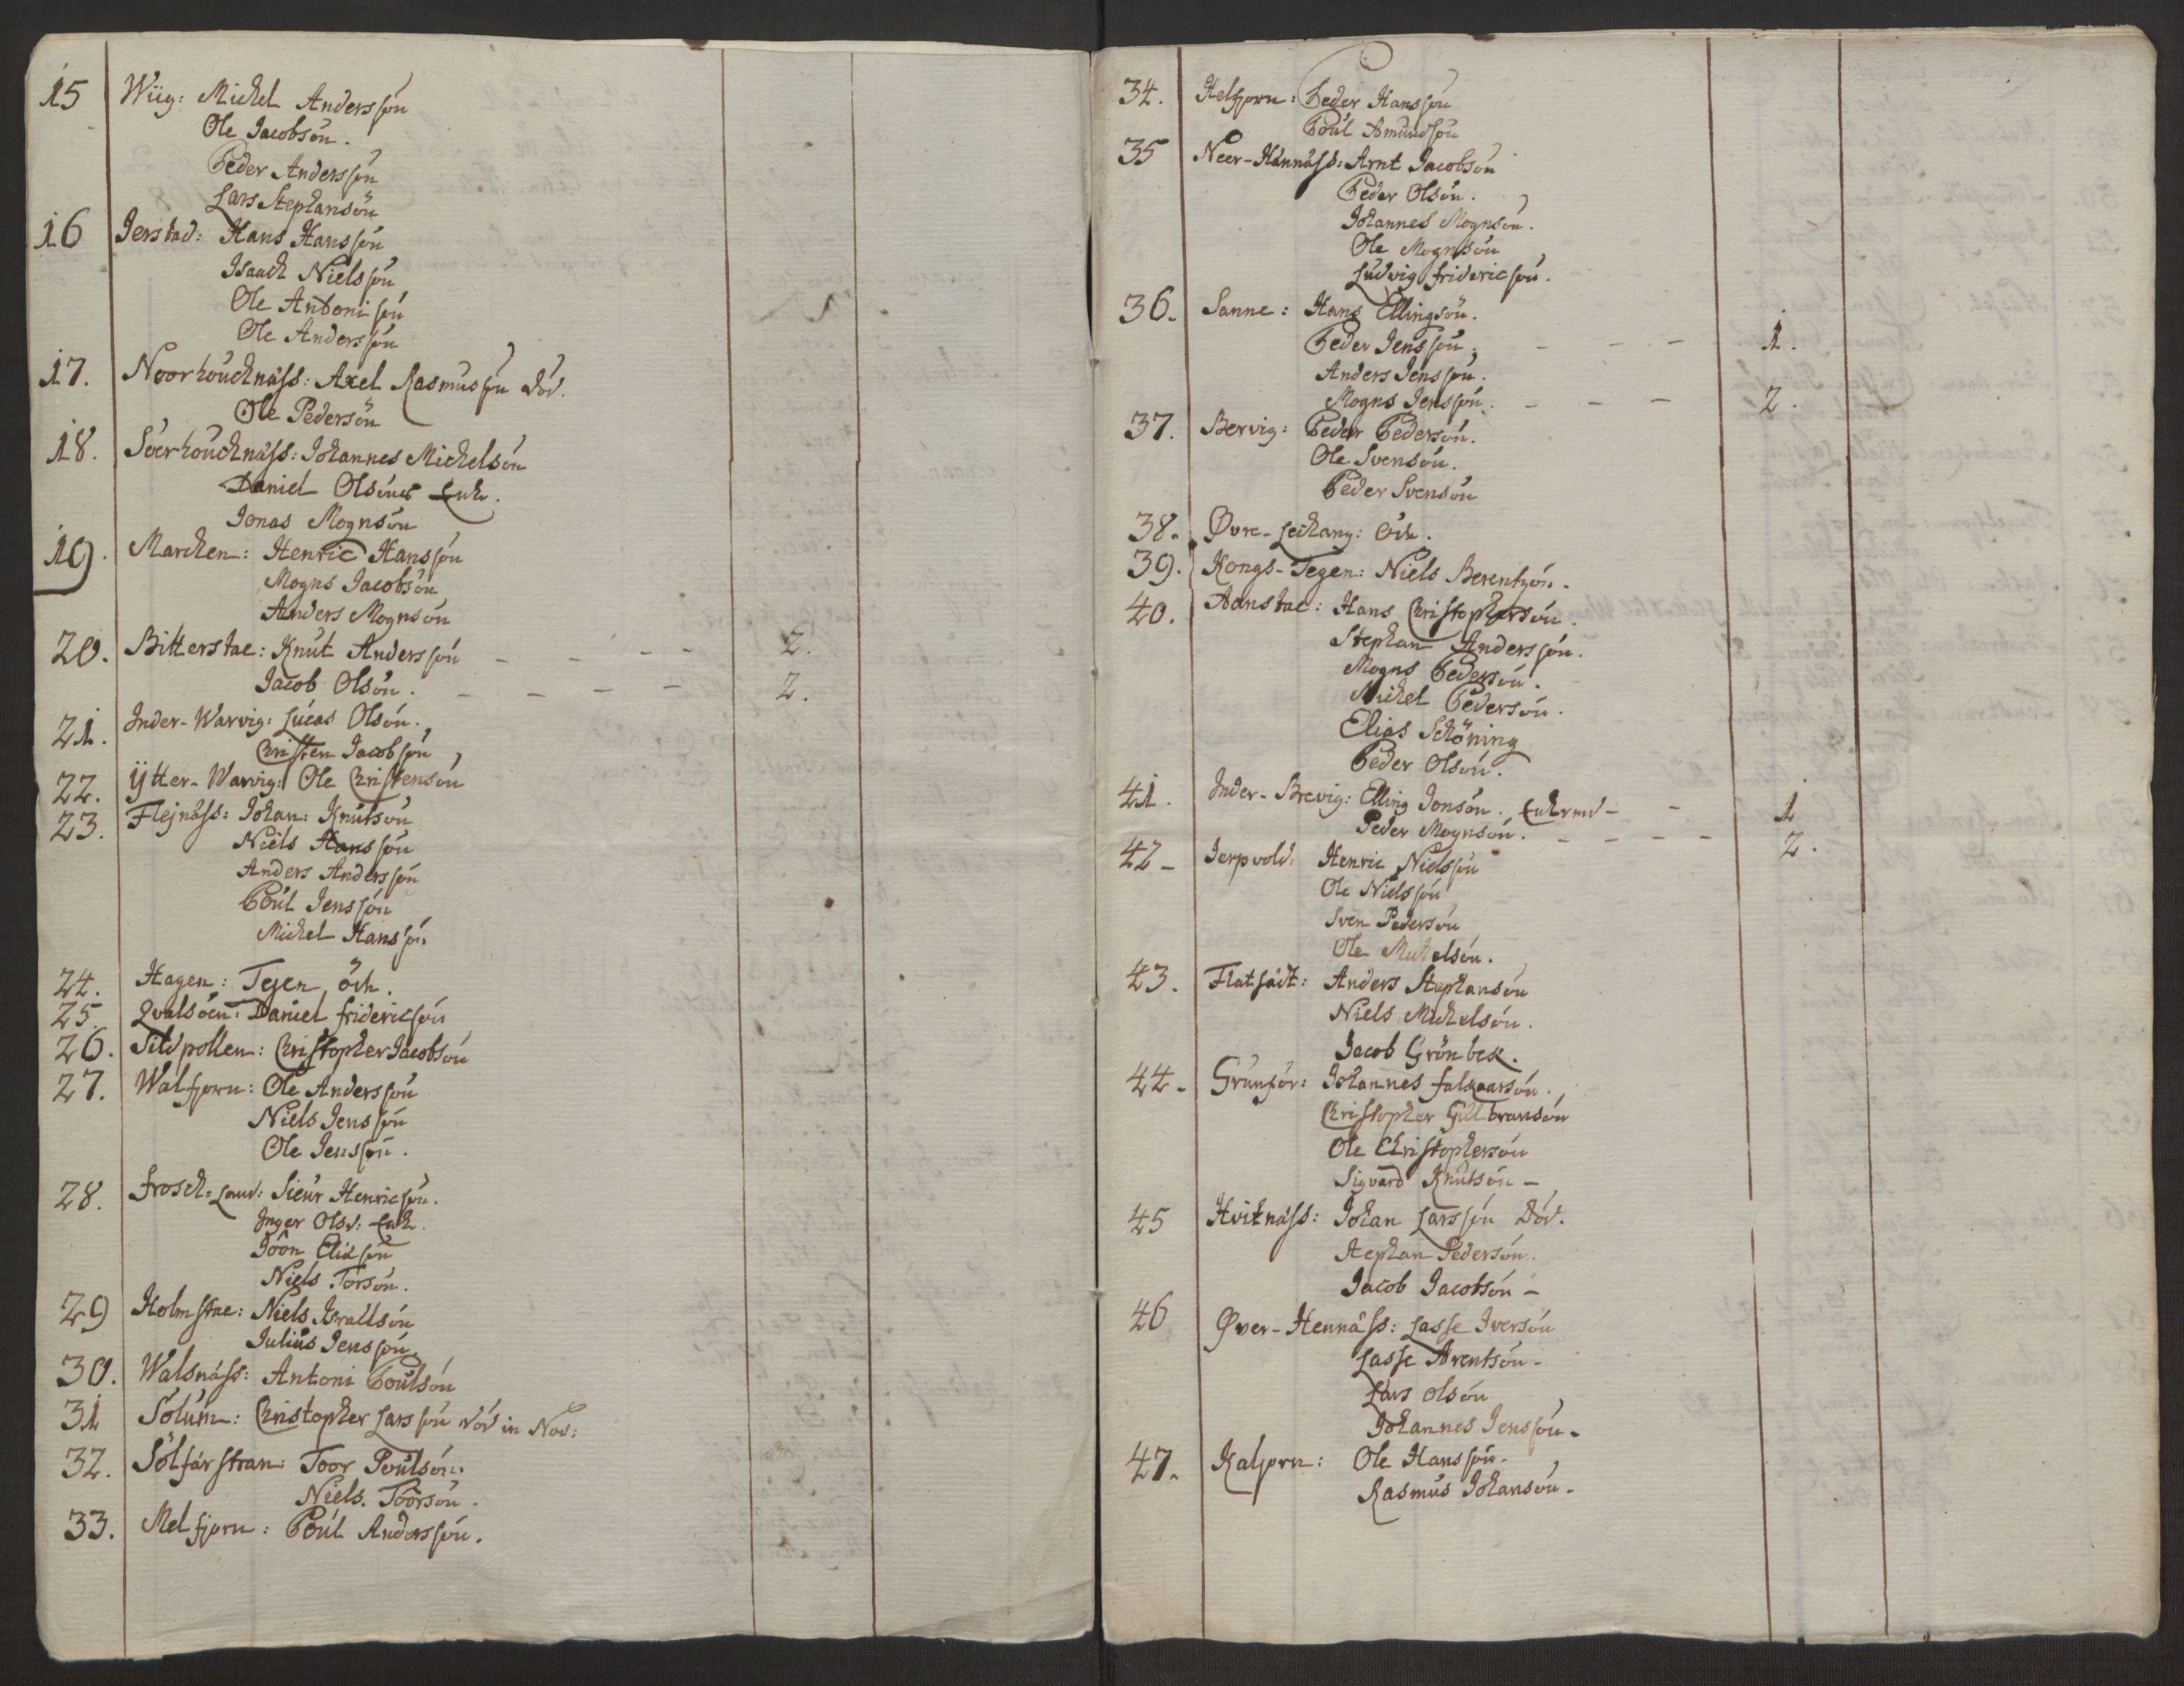 15 Wiig: Michel Anderssøn
Ole Jacobsøn.
Peder Anderssøn
Lars Stephansøn
16 Jerstad: Hans Hanssøn
Isaach Nielssøn
Ole Antonisøn
Ole Anderssøn
17. Noorhouchnæss: Axel Rasmussøn død.
Ole Pedersøn
18. Søerhouchnæss: Johannes Michelsøn
Daniel Olsøns Enk.
Jonas Mognsøn
19. Marchen: Henric Hanssøn
Mogns Jacobsøn
Anders Mognsøn
20. Bitterstae: Knut Anderssøn - - - - 2.
Jacob Olsøn. - - - - 2.
21. Inder-Warvig: Lucas Olsøn.
Christen Jacobsøn
22. Ytter-Warvig: Ole Christensøn
23. Flejnæss: Johan: Knutsøn
Niels Hanssøn
Anders Anderssøn
Poul Jenssøn
Michel Hanssøn
24. Hagen: Tejen öde.
25. Qvalsøen: Daniel fridericsøn
26. Sildpollen: Christopher Jacobsøn
27. Walfjorn: Ole Anderssøn
Niels Jenssøn
Ole Jenssøn.
28. frosch-Land: Sieur Henricsøn.
Inger Olsd: Enk.
Joon Eliassøn
Niels Torsøn.
29 Holmstae: Niels Israelsøn
Julius Jenssøn.
30. Walsnæss: Antoni Poulsøn
31 Solum: Christopher Larssøn død in Nov:
32. Solfarstran: Toor Poulsøn.
Niels. Toorsøn.
33. Melfjorn: Poul Anderssøn.
34. Helfjorn: Peder Hanssøn
Poul Amundsøn
35 Neer-Hannæss: Arnt Jacobsøn
Peder Olsøn.
Johannes Mognsøn.
Ole Mognsøn
Ludvig fridericsøn.
36. Sanne: Hans Ellingsøn.
Peder Jenssøn. - - - 1.
Anders Jenssøn.
Mogns Jenssøn. - - - 2.
37. Bervig: Peder Pedersøn.
Ole Svensøn.
Peder Svensøn
38. Øvre-Leichang: Öde.
39. Kongs-Tegen: Niels Berentzøn.
40. Aanstae: Hans Christophersøn.
Stephan Anderssøn.
Mogns Pedersøn.
Michel Pedersøn.
Elias Schöning
Peder Olsøn.
41. Inder-Brevig: Elling Jonsøn. Enkemd - - 1
Peder Mognsøn. - - - - 2.
42 - Jerpvold: Henric Nielssøn
Ole Nielssøn
Sven Pedersøn
Ole Michelsøn.
43. Flatsædt: Anders Stephansøn
Niels Michelsøn.
Jacob Grönbek.
44 - Grunfør: Johannes falkaarsøn.
Christopher Gulbransøn
Ole Christophersøn
Sigvard Knutsøn -
45 Hvitnæss: Johan Larssøn Død.
Stephan Pedersøn.
Jacob Jacobsøn -
46 Øver-Hennæss: Lasse Iversøn
Lasse Arentsøn -
Lars olsøn
Johannes Jenssøn -
47. Kaljorn: Ole Hanssøn -
Rasmus Johansøn -